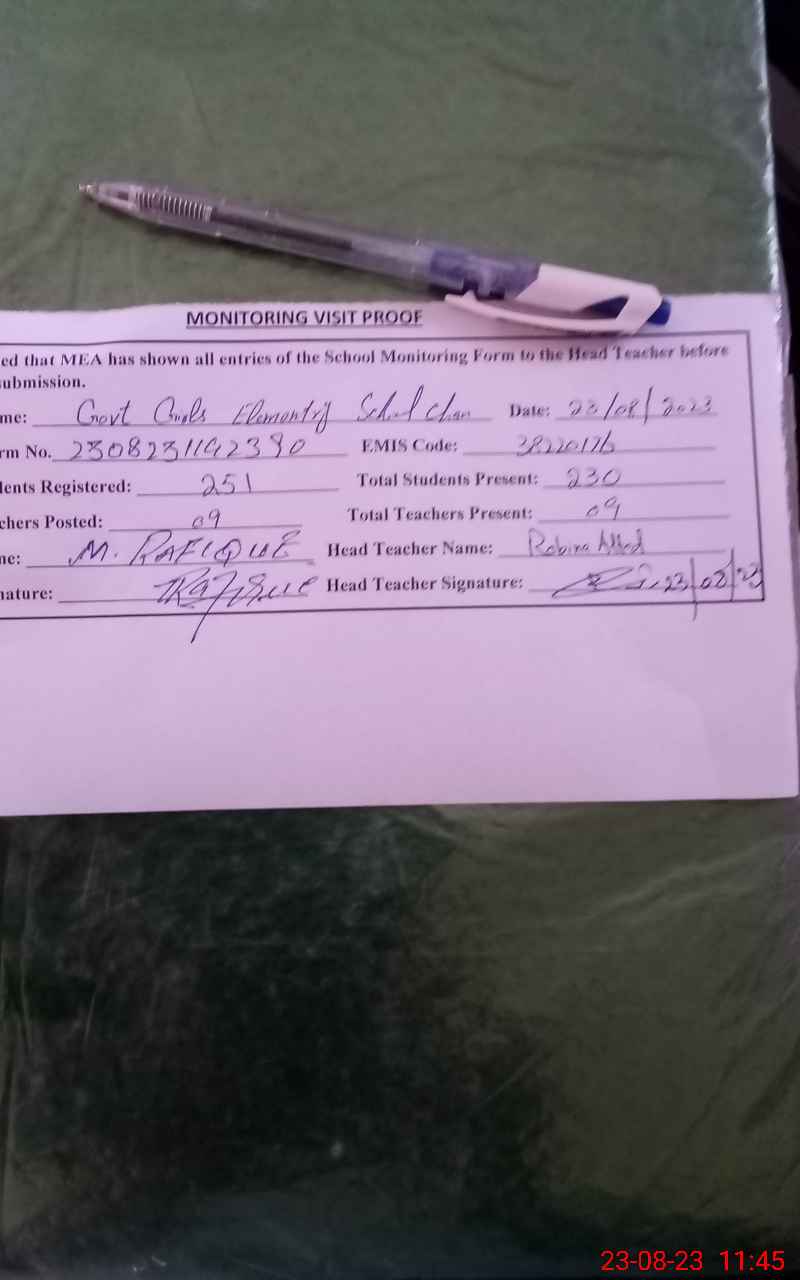 MONITORING VISIT PROOF
ed that MEA has shown all entries of the School Monitoring Form to the Head Teacher before
submission.
me: Govt Girls Elementry School Chan Date: 23/08/2023
rm No. 2308231142390 EMIS Code: 38220176
dents Registered: 251 Total Students Present: 230
chers Posted: 09 Total Teachers Present: 09
me: M. RAFIQUE Head Teacher Name: Robina
nature: Rafique Head Teacher Signature: 23/08/23
23-08-23 11:45